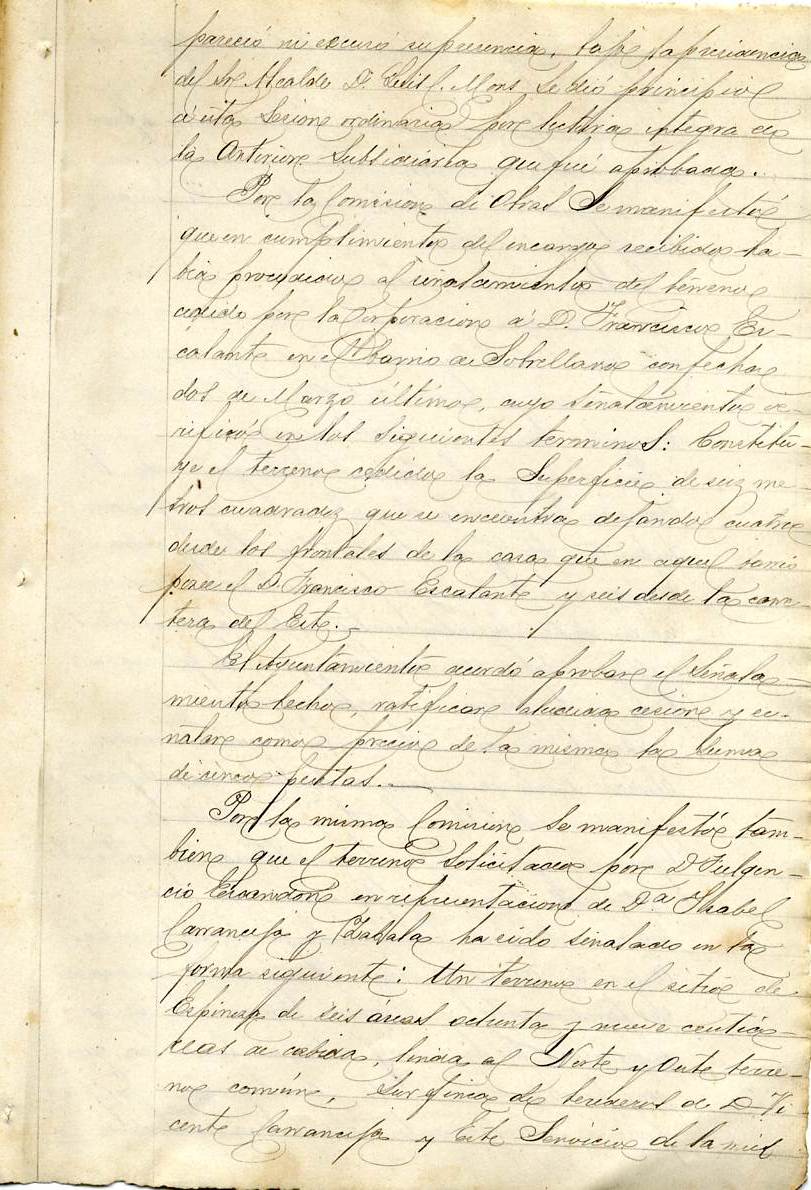 pareció ni escusó su presencia, bajo la presidencia
del Sr Alcalde D. Luis C. Mons, se dió principio
á esta Sesion ordinaria por lectura integra de
la Anterior Subsidiaria que fué aprobada.
Por la Comision de Obras Se manifestó
que en cumplimiento del encargo recibido ha-
bia procedido al señalamiento del terreno
cedido por la Corporacion á D. Francisco Es-
calante en el barrio de Sobrellano con fecha
dos de Marzo último, cuyo señalamiento ve-
rificó en los siguientes terminos: Constitu-
ye el terreno cedido la Superficie de seiz me-
tros cuadradoz que se encuentra dejando cuatro
desde los frontales de la casa que en aquel barrio
posee el D. Francisco Escalante y seis desde la carre-
tera del Este.
El Ayuntamiento acordó aprobar el Señala-
miento hecho, ratificar aludida cesion y se-
ñalar como precio de la misma la suma
de cinco pesetas.
Por la misma Comision Se manifestó tam-
bien que el terreno Solicitado por D Fulgen-
cio Escandon en representacion de Dª Isabel
Carranceja y Zabala ha sido señalado en la
forma siguiente: Un terreno en el sitio de
Espinosa de seis áreas ochenta y nueve centiá-
reas de cabida, linda al Norte y Oeste terre-
no común, Sur finca de herederos de D. Vi-
cente Carranceja y Este Servicio de la mies